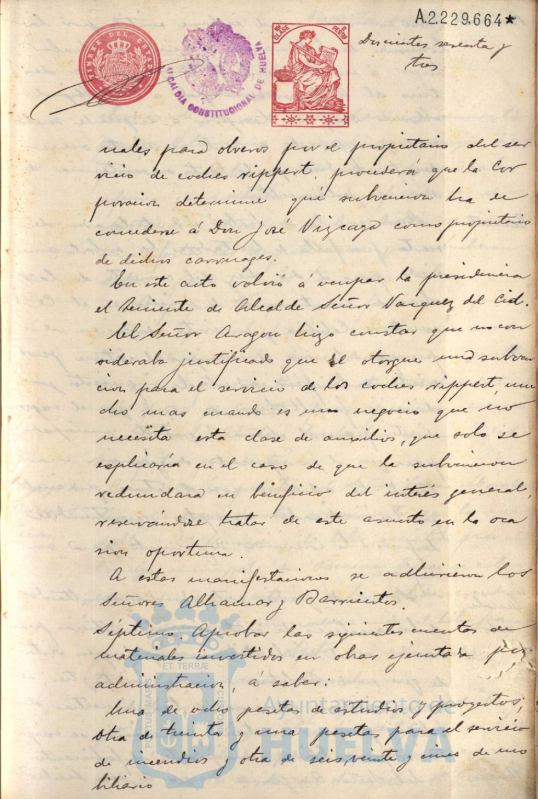 A.2.229.664★
Doscientos sesenta y
tres
TIMBRE DEL ESTADO
ALCALDIA CONSTITUCIONAL DE HUELVA
nales para obreros por el propietario del ser
vicio de coches rippert, procederá que la Cor
poracion determine qué subvencion ha de
concederse á Don José Vizcaya como propietario
de dichos carruages.
En este acto volvió a ocupar la presidencia
el Teniente de Alcalde Señor Vazquez del Cid.
El Señor Aragon hizo constar que no con
sideraba justificado que se otorgue una subven
cion para el servicio de los coches rippert, mu
cho mas cuando es un negocio que no
necesita esta clase de auxilios, que solo se
explicaria en el caso de que la subvencion
redundara en beneficio del interés general,
reservándose tratar de este asunto en la oca
sion oportuna.
A estas manifestaciones se adhirieron los
Señores Alhamar y Barrientos.
Séptimo. Aprobar las siguientes cuentas de
materiales invertidos en obras ejecutadas por
administracion, á saber:
Una de ocho pesetas de estudios y proyectos;
otra de treinta y una pesetas para el servicio
de incendios y otra de seis, veinte y cinco de mo
biliario
Ayuntamiento de
HUELVA